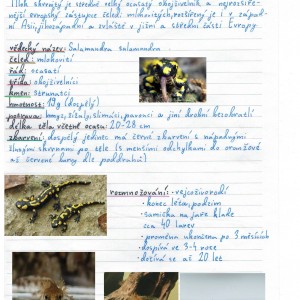 Mlok skvrnitý je středně velký ocasatý obojživelník a nejrozšíře-
nější evropský zástupce čeledi mlokovitých, rozšířený je i v západ-
ní Asii, jihozápadní a zvláště v jižní a střední části Evropy.
vědecký název: Salamandra salamandra
čeleď: mlokovití
řád: ocasatí
třída: obojživelníci
kmen: strunatci
hmotnost: 19g (dospělý)
potrava: hmyz, žížaly, slimáci, pavouci a jiní drobní bezobratlí
délka těla, včetně ocasu: 20-28 cm
zbarvení: dospělý jedinec má černé zbarvení s nápadnými
žlutými skvrnami po těle (s menšími odchylkami do oranžové
až červené barvy dle poddruhů)
rozmnožování: - vejcoživorodí
- konec léta, podzim
- samička na jaře klade
cca 40 larev
- proměna ukončena po 3 měsících
- dospívá ve 3-4 roce
- dožívá se až 20 let